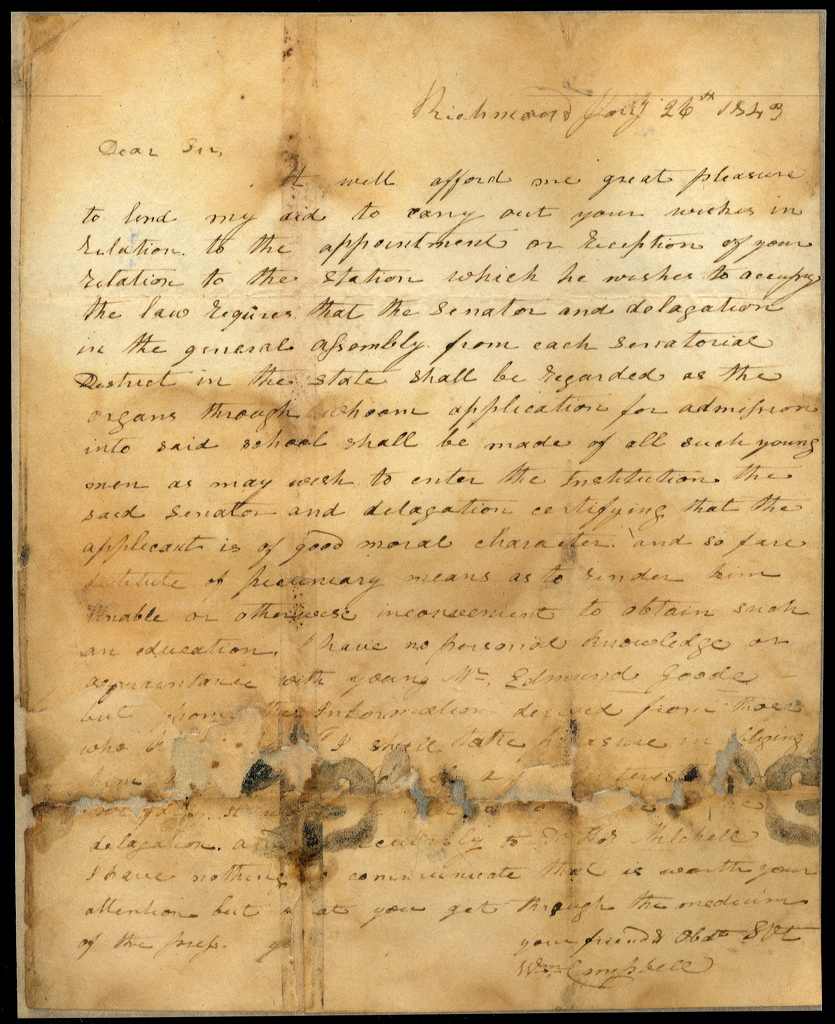 Richmond Jany 26th 1843
Dear Sir,
It will afford me great pleasure
to lend my aid to carry out your wishes in
relation to the appointment or reception of your
relation to the station which he wishes to occupy
the law requires that the senator and delagation
in the general assembly from each senatorial
District in the state shall be regarded as the
organs through whoom application for admission
into said school shall be made of all such young
men as may wish to enter the Institution the
said senator and delagation certifying that the
applicant is of good moral character and so fare
destitute of pecuniary means as to render him
unable or otherwise inconvenient to obtain such
an education. I have no personal knowledge or
acquaintance with young Mr. Edmund Goode
but from the Information derived from those
who I shall take pleasure in
interest
delagation. to Mitchell
I have nothing communicate that is worth your
attention but at you get through the medium
of the press.
your friend & Obdt Svt
Wm Campbell